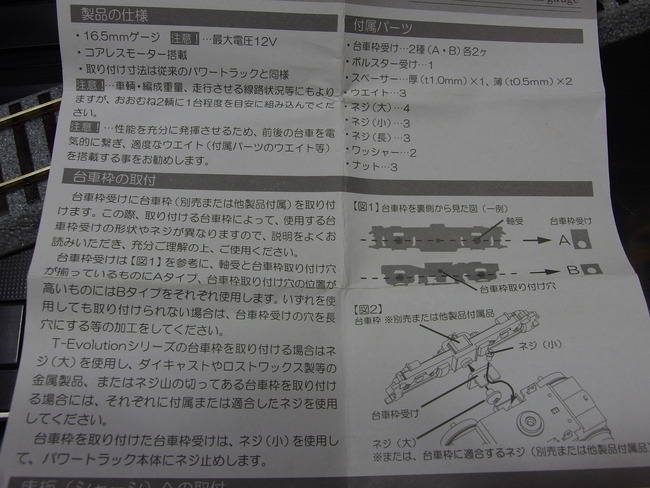 gauge
製品の仕様
・16.5mmゲージ 注意！…最大電圧12V
・コアレスモーター搭載
・取り付け寸法は従来のパワートラックと同様
注意！…車輌・編成重量、走行させる線路状況等にもより
ますが、おおむね2輌に1台程度を目安に組み込んでくだ
さい。
注意！…性能を充分に発揮させるため、前後の台車を電
気的に繋ぎ、適度なウエイト（付属パーツのウエイト等）
を搭載する事をお勧めします。
台車枠の取付
台車枠受けに台車枠（別売または他製品付属）を取り付
けます。この際、取り付ける台車枠によって、使用する台
車枠受けの形状やネジが異なりますので、説明をよくお
読みいただき、充分ご理解の上、ご使用ください。
台車枠受けは【図1】を参考に、軸受と台車枠取り付け穴
が揃っているものにAタイプ、台車枠取り付け穴の位置が
高いものにはBタイプをそれぞれ使用します。いずれを使
用しても取り付けられない場合は、台車枠受けの穴を長
穴にする等の加工をしてください。
T-Evolutionシリーズの台車枠を取り付ける場合はネ
ジ（大）を使用し、ダイキャストやロストワックス製等の
金属製品、またはネジ山の切ってある台車枠を取り付け
る場合には、それぞれに付属または適合したネジを使用
してください。
台車枠を取り付けた台車枠受けは、ネジ（小）を使用し
て、パワートラック本体にネジ止めします。
床板（シャーシ）への取付
付属パーツ
・台車枠受け…2種（A・B）各2ヶ
・ボルスター受け…1
・スペーサー…厚（t1.0mm）×1、薄（t0.5mm）×2
・ウエイト…3
・ネジ（大）…4
・ネジ（小）…3
・ネジ（長）…3
・ワッシャー…2
・ナット…3
【図1】台車枠を裏側から見た図（一例）
軸受
台車枠受け
A
B
台車枠取り付け穴
【図2】
台車枠 ※別売または他製品付属品
ネジ（小）
台車枠受け
ネジ（大）
※または、台車枠に適合するネジ（別売または他製品付属品）